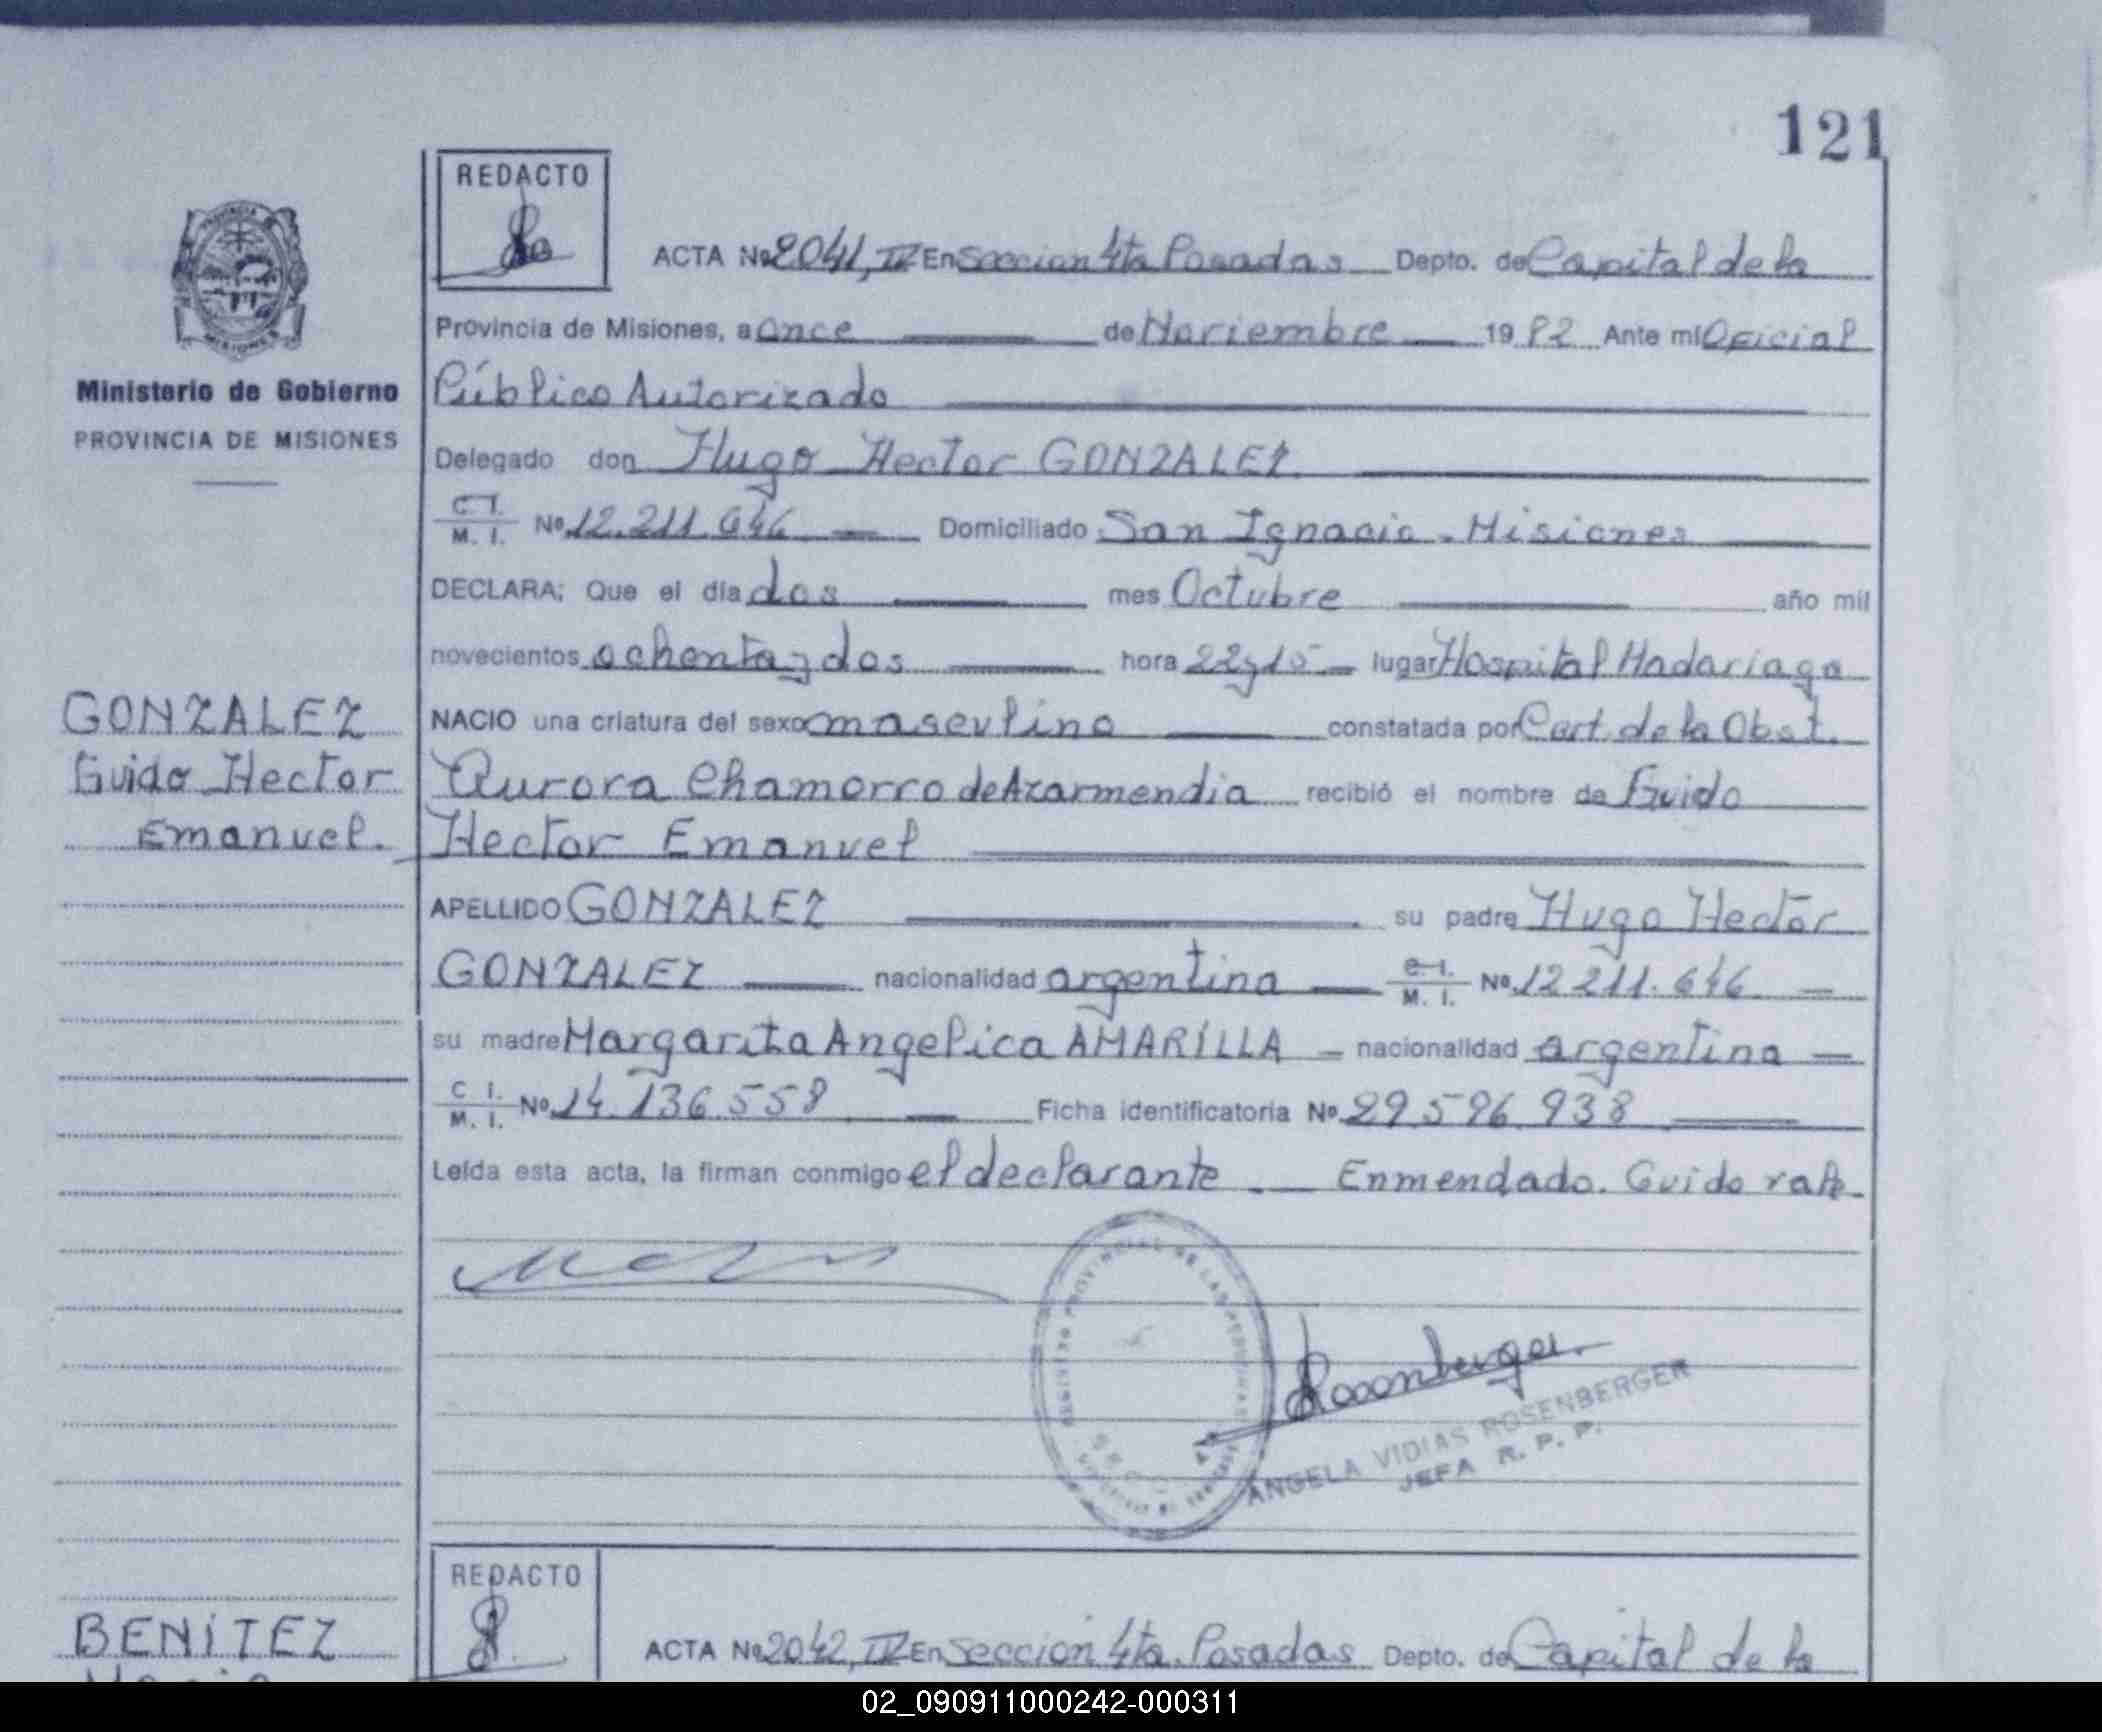 121
REDACTO
ACTA Nº 2041, IV En Seccion 4ta Posadas Depto. de Capital de la
Provincia de Misiones, a once de Noviembre 1982 Ante mí Oficial
Ministerio de Gobierno
Público Autorizado
PROVINCIA DE MISIONES
Delegado don Hugo Hector GONZALEZ
C I.
M. I. Nº 12.211.646 Domiciliado San Ignacio - Misiones
DECLARA; Que el día dos mes Octubre año mil
novecientos ochenta y dos hora 22 y 15 lugar Hospital Madariaga
GONZALEZ
NACIO una criatura del sexo masculino constatada por Cert. de la Obst.
Guido Hector
Aurora Chamorro de Azarmendia recibió el nombre de Guido
Emanuel.
Hector Emanuel
APELLIDO GONZALEZ su padre Hugo Hector
GONZALEZ nacionalidad argentina C. I.
M. I. Nº 12 211.646
su madre Margarita Angelica AMARILLA nacionalidad argentina
C I.
M. I. Nº 14.136.558 Ficha identificatoria Nº 29.596.938
Leída esta acta, la firman conmigo el declarante. Enmendado. Guido vale.
Rosenberger
ANGELA VIDIAS ROSENBERGER
JEFA R. P. P.
REDACTO
BENITEZ
ACTA Nº 2042, IV En Seccion 4ta. Posadas Depto. de Capital de la
02_090911000242-000311